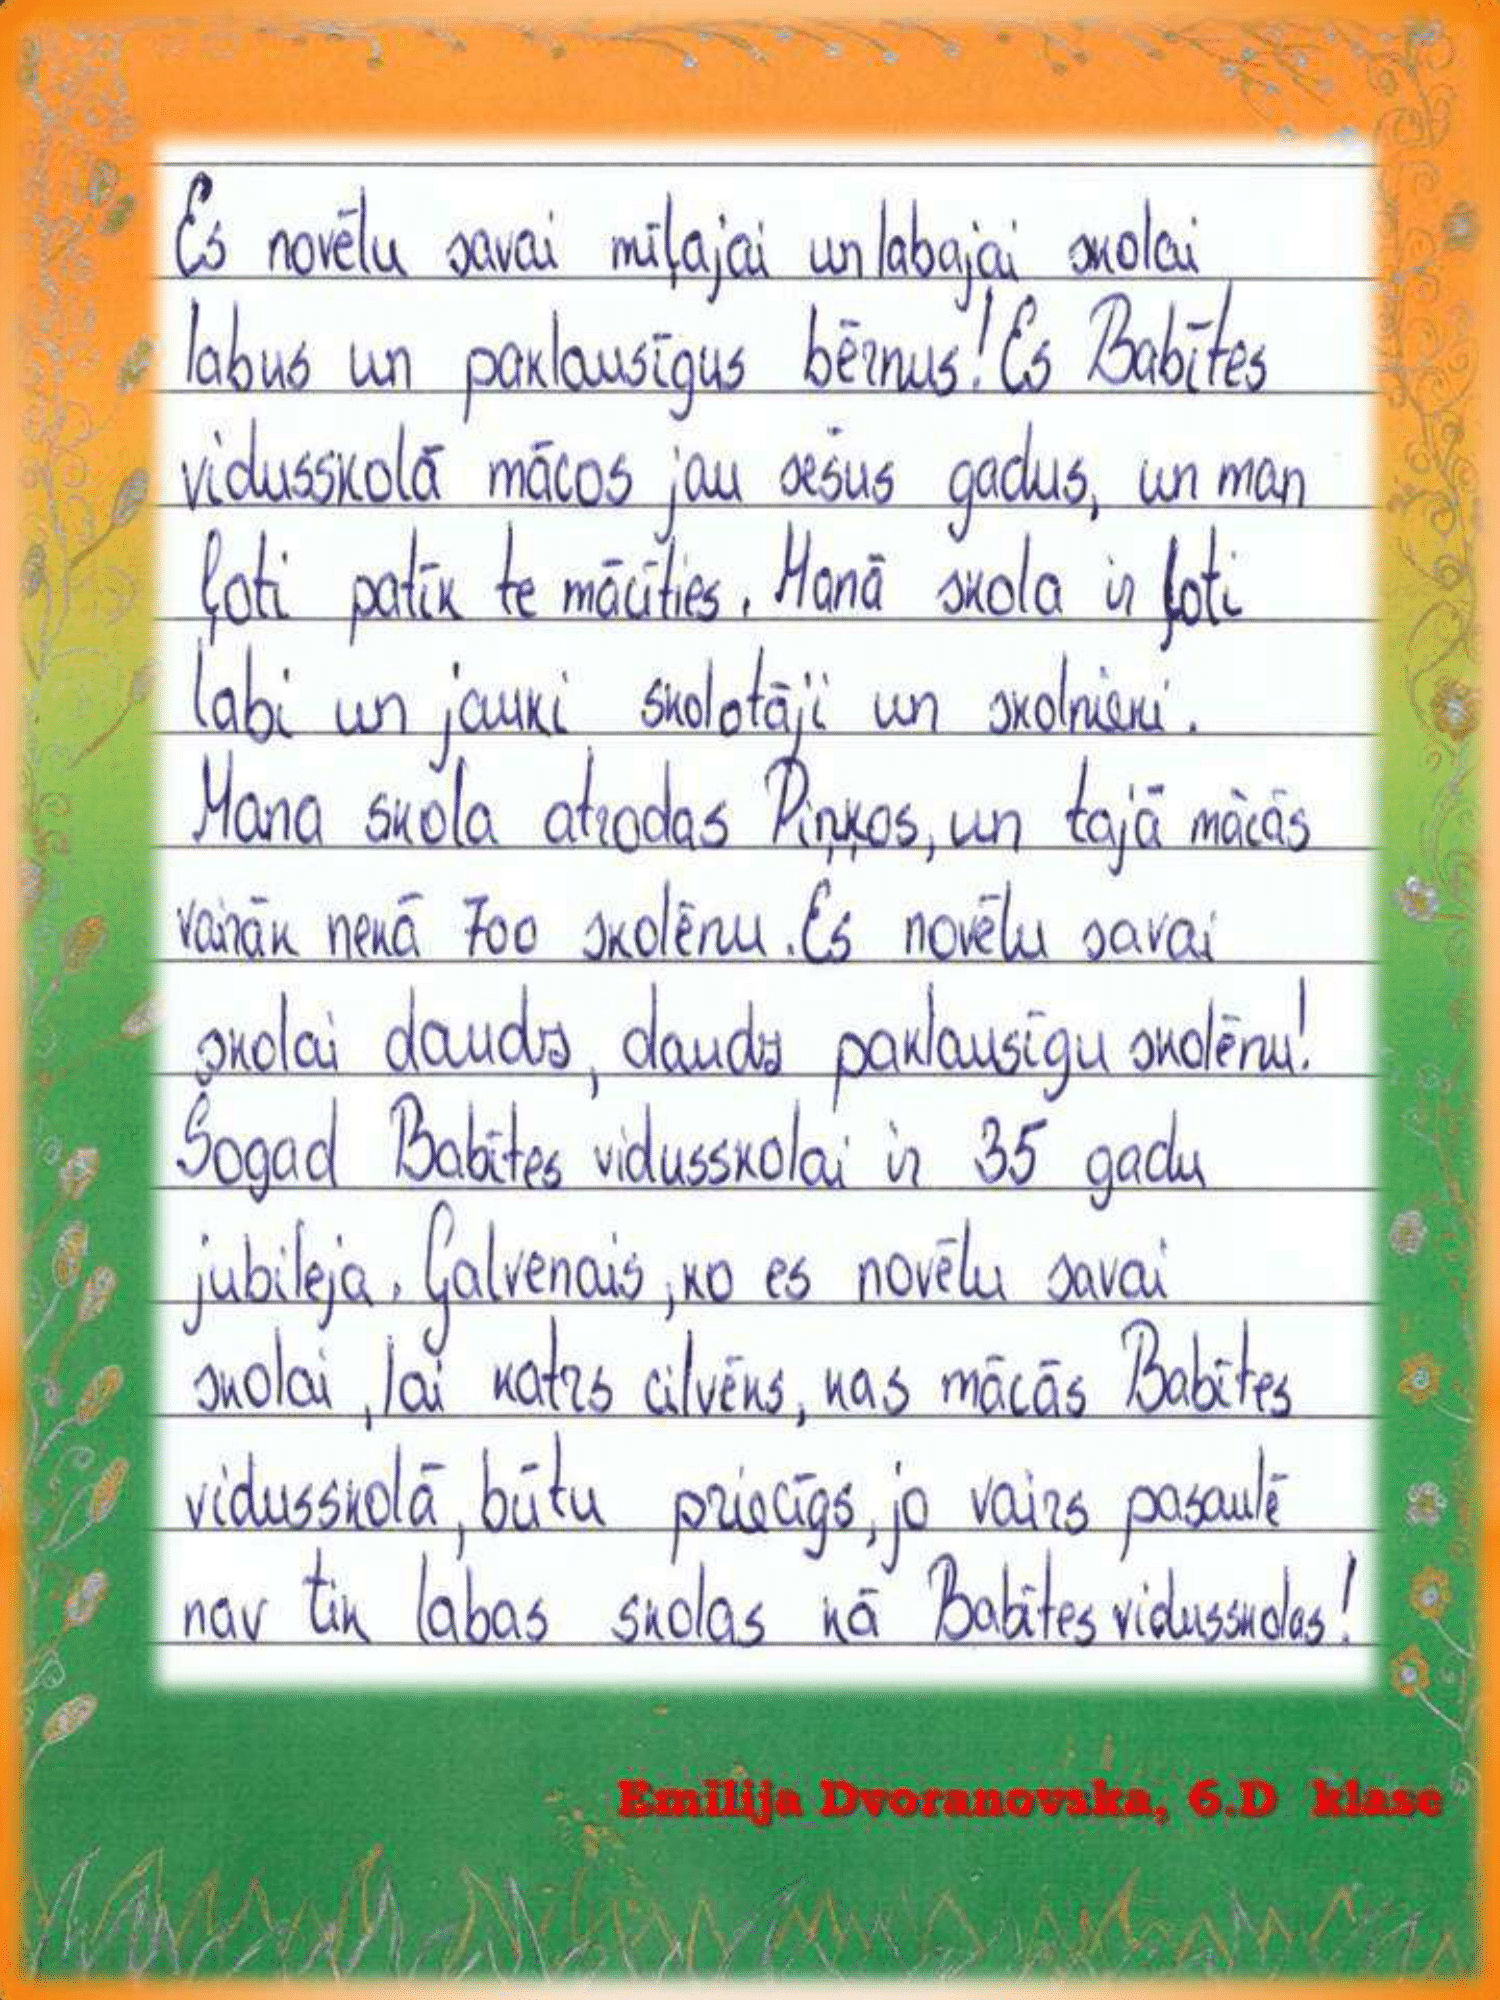 Es novēlu savai mīļajai un labajai skolai
labus un paklausīgus bērnus! Es Babītes
vidusskolā mācos jau sešus gadus, un man
ļoti patīk te mācīties. Manā skola ir ļoti
labi un jauki skolotāji un skolnieki.
Mana skola atrodas Piņķos, un tajā mācās
vairāk nekā 700 skolēnu. Es novēlu savai
skolai daudz, daudz paklausīgu skolēnu!
Šogad Babītes vidusskolai ir 35 gadu
jubileja. Galvenais, ko es novēlu savai
skolai, lai katrs cilvēks, kas mācās Babītes
vidusskolā, būtu priecīgs, jo vairs pasaulē
nav tik labas skolas kā Babītes vidusskolas!
Emīlija Dvoranovska, 6.D klase